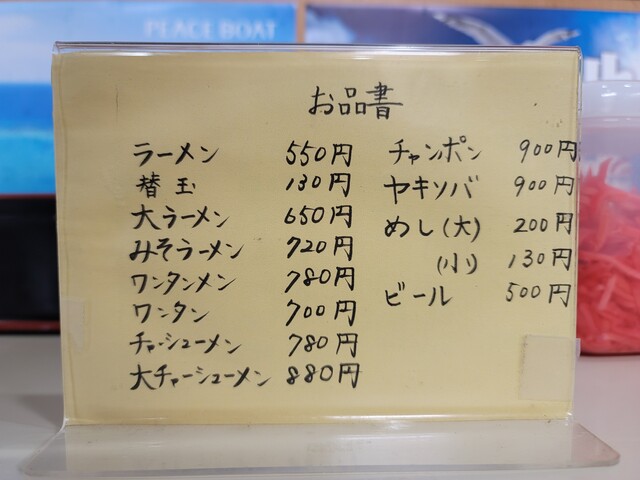 PEACE BOAT
お品書
ラーメン 550円
替玉 130円
大ラーメン 650円
みそラーメン 720円
ワンタンメン 780円
ワンタン 700円
チャーシューメン 780円
大チャーシューメン 880円
チャンポン 900円
ヤキソバ 900円
めし(大) 200円
(小) 130円
ビール 500円